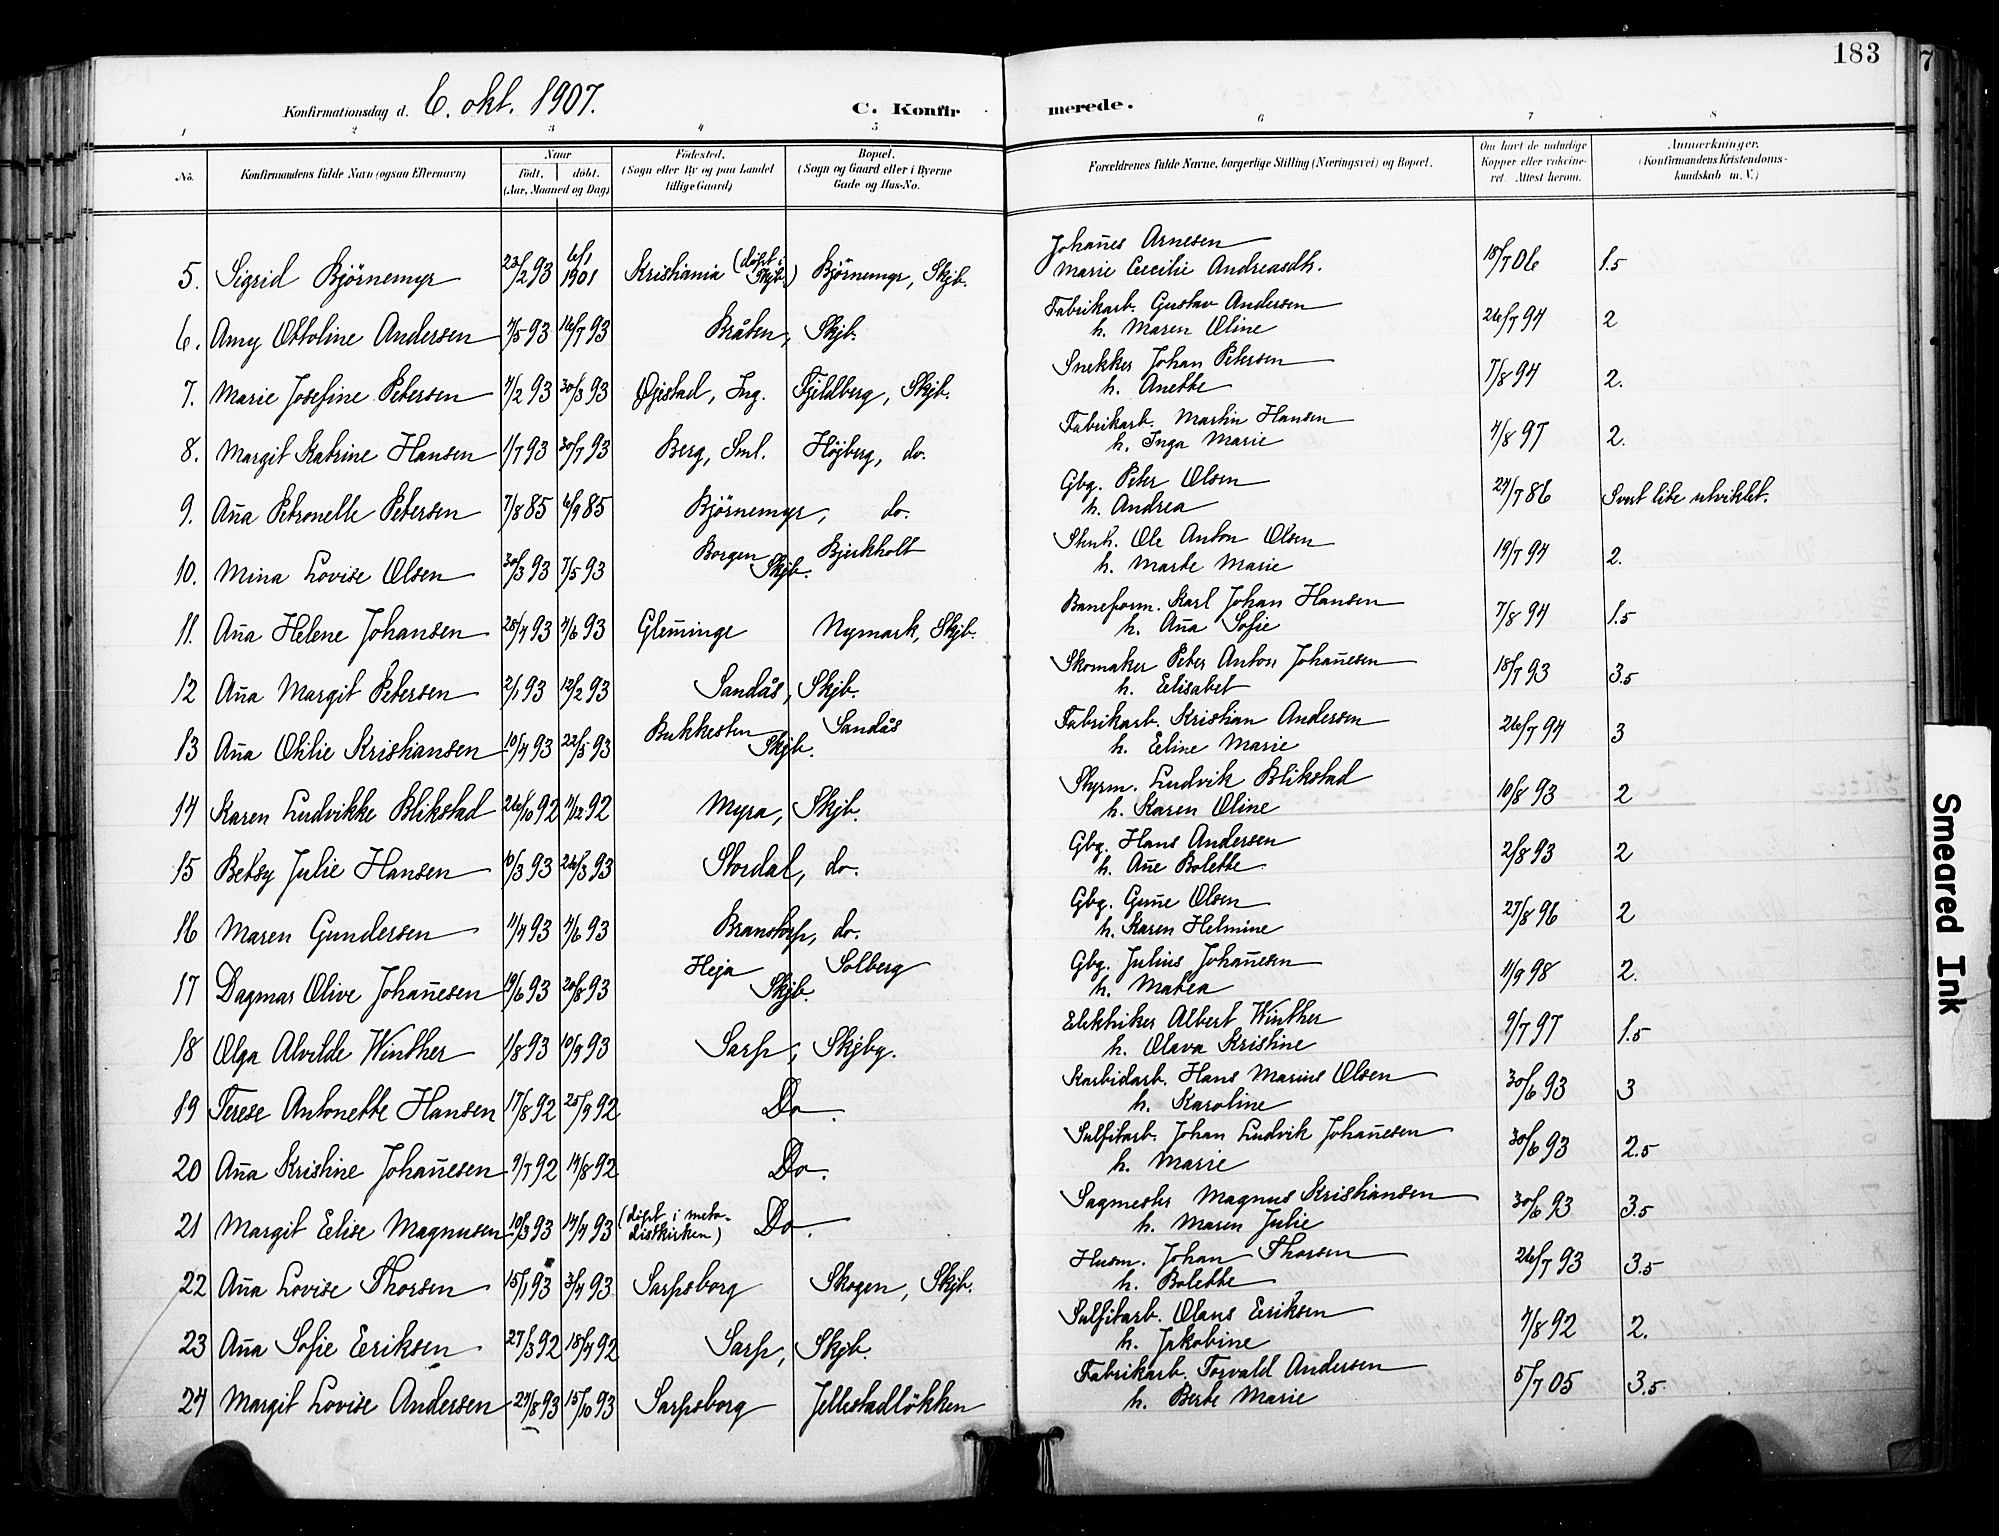 183
7
Konfirmationsdag d. 6. okt. 1907. C. Konfirmerede.
1 2 3 4 5 6 7 8
No. Konfirmandens fulde Navn (ogsaa Efternavn) Naar født. døbt. (Aar, Maaned og Dag) Fødested. (Sogn eller By og paa Landet tillige Gaard) Bopæl. (Sogn og Gaard eller i Byerne Gade og Hus-No. Forældrenes fulde Navne, borgerlige Stilling (Næringsvei) og Bopæl. Om havt de naturlige Kopper eller vakcineret. Attest herom. Anmærkninger. (Konfirmandens Kristendomskundskab m. V.)
5. Sigrid Björnemyr 23/2 93 6/1 1901 Kristiania (döpt i Skjb.) Björnemyr, Skjb. Johan̄es Arnesen Marie Cecilie Andreasdtr. 18/7 06 1.5
6. Amy Ottoline Andersen 7/5 93 16/7 93 Bråten, Skjb. Fabrikarb. Gustav Andersen h. Maren Oline 26/7 94 2
7. Marie Josefine Petersen 7/2 93 30/3 93 Øjestad, Ing. Fjeldberg, Skjb. Snekker Johan Petersen h. Anette 7/8 94 2.
8. Margit Katrine Hansen 1/7 93 30/7 93 Berg, Sml. Höjberg, do. Fabrikarb. Martin Hansen h. Inga Marie 4/8 97 2.
9. An̄a Petronelle Petersen 7/8 85 6/9 85 Björnemyr, do. Gbg. Peter Olsen h. Andrea 24/7 86 Svert lite utviklet.
10. Mina Lovise Olsen 30/3 93 7/5 93 Borgen Skjb. Bjerkholt Stenh. Ole Anton Olsen h. Marte Marie 19/7 94 2.
11. An̄a Helene Johansen 25/4 93 4/6 93 Glem̄inge Nymark, Skjb. Baneform. Karl Johan Hansen h. An̄a Sofie 7/8 94 1.5
12 An̄a Margit Petersen 2/1 93 12/2 93 Sandås, Skjb. Skomaker Peter Anton Johan̄esen h. Elisabet 18/7 93 3.5
13 An̄a Othlie Kristiansen 10/4 93 22/5 93 Bukkesten Skjb. Sandås Fabrikarb. Kristian Andersen h. Eline Marie 26/7 94 3
14 Karen Ludvikke Blikstad 26/10 92 11/12 92 Myra, Skjb. Styrm. Ludvik Blikstad h. Karen Oline 10/8 93 2
15 Betsy Julie Hansen 10/3 93 26/3 93 Stordal, do. Gbg. Hans Andersen h. An̄e Bolette 2/8 93 2
16 Maren Gundersen 11/4 93 4/6 93 Branstorp, do. Gbg. Gun̄e Olsen h. Karen Helmine 27/8 96 2
17 Dagmar Olive Johan̄esen 19/6 93 20/8 93 Heja Skjb. Solberg Gbg. Julius Johan̄esen h. Matea 11/9 98 2.
18 Olga Alvilde Winther 1/8 93 10/9 93 Sarp, Skjbg. Elektriker Albert Winther h. Olava Kristine 9/7 97 1.5
19 Terese Antonette Hansen 17/8 92 25/9 92 Do. Karbidarb. Hans Marius Olsen h. Karoline 30/6 93 3
20 An̄a Kristine Johan̄esen 9/7 92 14/8 92 Do. Sulfitarb. Johan Ludvik Johan̄esen h. Marie 30/6 93 2.5
21 Margit Elise Magnusen 10/3 93 14/4 93 (döpt i metodistkirken) Do. Sagmester Magnus Kristiansen h. Maren Julie 30/6 93 3.5
22 An̄a Lovise Thorsen 15/1 93 3/4 93 Sarpsborg Skogen, Skjb. Husm. Johan Thorsen h. Bolette 26/7 93 3.5
23 An̄a Sofie Eriksen 27/3 92 18/4 92 Sarp, Skjb. Sulfitarb. Olaus Eriksen h. Jakobine 4/8 92 2.
24 Margit Lovise Andersen 24/8 93 15/10 93 Sarpsborg Jellestadlökken Fabrikarb. Torvald Andersen h. Berte Marie 5/7 05 3.5
Smeared Ink